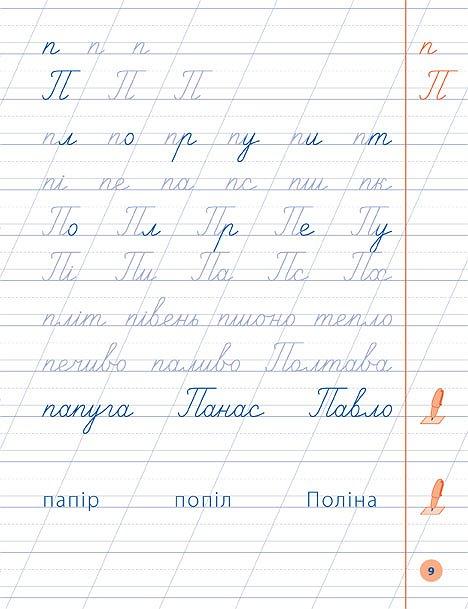 п п п п
П П П П
пл по пр пу пи пт
пі пе па пс пш пк
По Пл Пр Пе Пу
Пі Пи Па Пс Пх
пліт півень пшоно тепло
печиво паливо Полтава
папуга Панас Павло
папір попіл Поліна
9